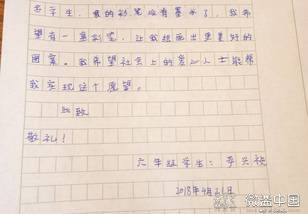 名学生，我的彩笔没有墨水了，我希
望有一盒彩笔，让我绘画出更美好的
图案。我希望社会上的爱心人士能帮
我实现这个愿望。
此致
敬礼！
六年级学生：李兴
2018年4月21日
微益中国